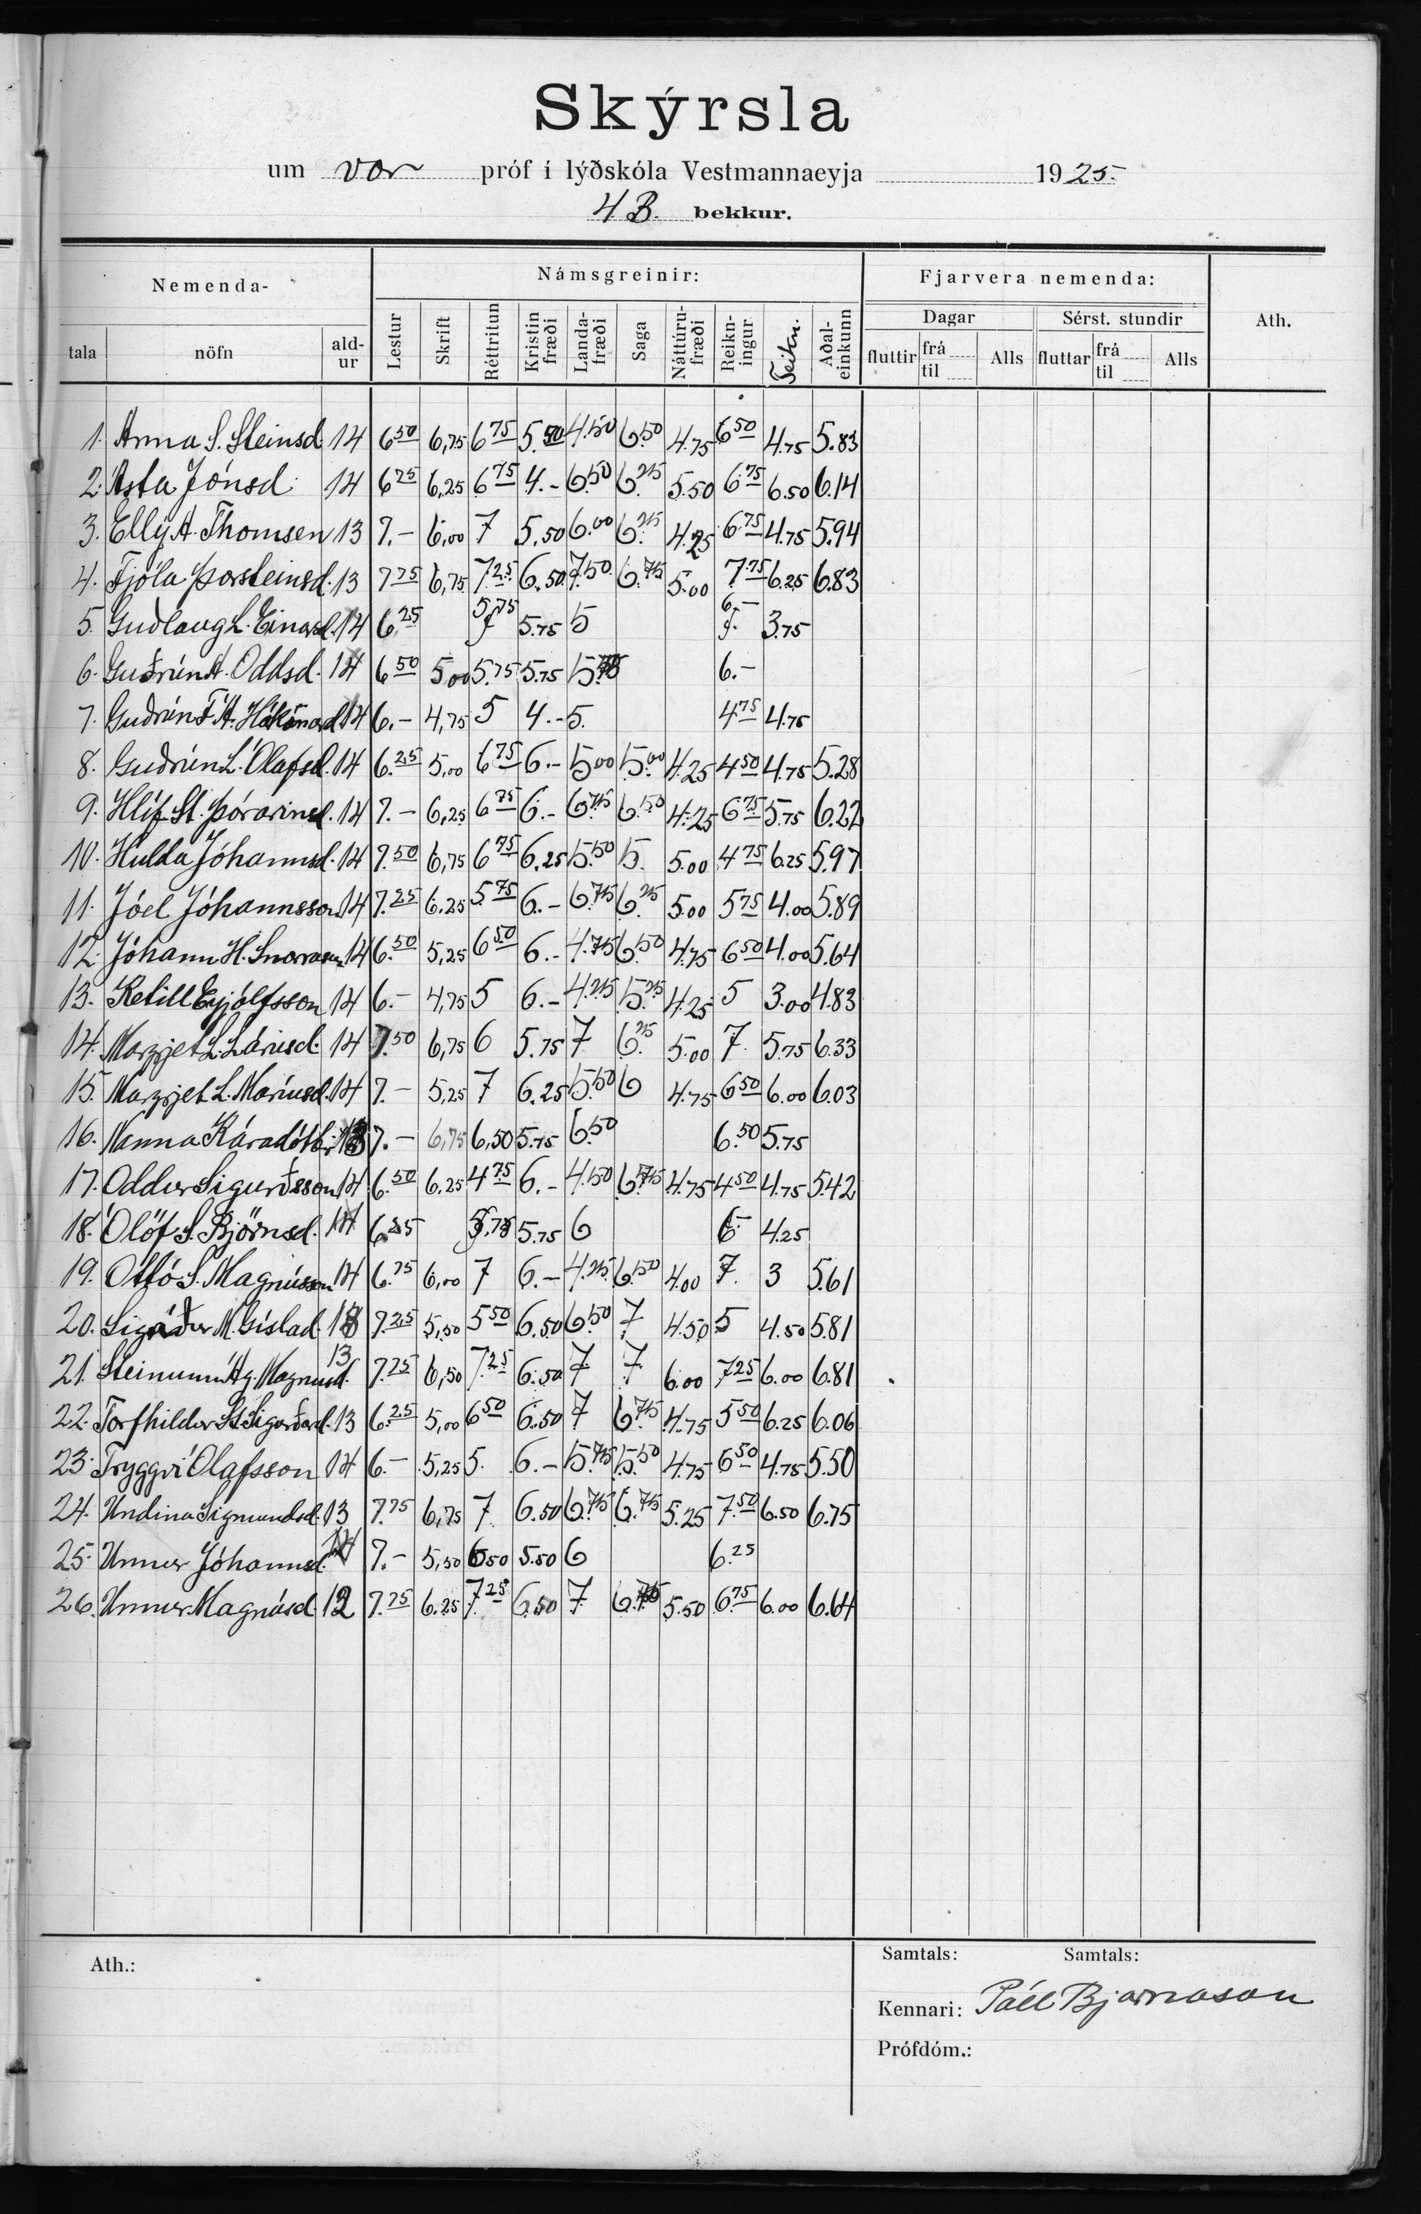 Skýrsla
um vor próf í lýðskóla Vestmannaeyja 1925.
4 B. bekkur.
Nemenda- Námsgreinir: Fjarvera nemenda: Ath.
Dagar Sérst. stundir
tala nöfn ald-ur Lestur Skrift Réttritun Kristin fræði Landa-fræði Saga Náttúru-fræði Reikn-ingur Teikn. Aðal-einkunn fluttir frá til Alls fluttar frá til Alls
1. Anna S. Steinsd. 14 6 50 6,75 6 75 5.50 4.50 6.50 4.75 6 50 4.75 5.83
2. Asta Jónsd. 14 6 25 6,25 6 75 4.- 6.50 6.25 5.50 6.75 6.50 6.14
3. Elly A. Thomsen 13 7.- 6,00 7 5.50 6.00 6.25 4.25 6.75 4.75 5.94
4. Fjóla Þorsteinsd. 13 7 75 6,75 7.25 6.50 7.50 6.75 5.00 7.75 6.25 6.83
5. Guðlaug L. Einarsd. 14 6.25 5,75 5.75 5 6.- 3.75
6. Guðrún A. Oddsd. 14 6 50 5 00 5.75 5.75 5.75 6.-
7. Guðrún F. Á. Hákonard. 14 6.- 4,75 5 4.- 5. 4 75 4.75
8. Guðrún L. Ólafsd. 14 6.25 5,00 6 75 6.- 5.00 5.00 4.25 4 50 4.75 5.28
9. Hlíf St. Þórarinsd. 14 7.- 6,25 6 75 6.- 6.75 6.50 4.25 6 75 5.75 6.22
10. Hulda Jóhannsd. 14 7.50 6,75 6 75 6.25 5.50 5. 5.00 4 75 6.25 5.97
11. Jóel Jóhannsson 14 7.25 6.25 5 75 6.- 6.75 6.25 5.00 5 75 4.00 5.89
12. Jóhann H. Snorrason 14 6.50 5,25 6 50 6.- 4.75 6.50 4.75 6 50 4.00 5.64
13. Ketill Eyjólfsson 14 6.- 4,75 5 6.- 4.25 5.25 4.25 5 3.00 4.83
14. Margjet L. Lárusd. 14 7.50 6,75 6 5.75 7 6.25 5.00 7. 5.75 6.33
15. Margjet L. Maríusd. 14 7.- 5,25 7 6.25 5.50 6 4.75 6 50 6.00 6.03
16. Nanna Káradóttir 13 7.- 6,75 6,50 5.75 6.50 6.50 5.75
17. Oddur Sigurðsson 14 6.50 6.25 4 75 6.- 4.50 6.75 4.75 4 50 4.75 5.42
18. Ólöf S. Björnsd. 14 6.25 5.75 5.75 6 6 4.25
19. Óttó S. Magnússon 14 6.75 6,00 7 6.- 4.25 6.50 4.00 7. 3 5.61
20. Sigríður M. Gíslad. 13 7.25 5,50 5 50 6.50 6.50 7 4.50 5 4.50 5.81
21. Steinunn Ag. Magnusd. 13 7.25 6,50 7.25 6.50 7 7 6.00 7 25 6.00 6.81
22. Torfhildur St. Sigurðard. 13 6.25 5,00 6 50 6.50 7 6.75 4.75 5 50 6.25 6.06
23. Tryggvi Ólafsson 14 6.- 5,25 5. 6.- 5.75 5.50 4.75 6 50 4.75 5.50
24. Undína Sigmundsd. 13 7.75 6,75 7 6.50 6.75 6.75 5.25 7.50 6.50 6.75
25. Unnur Jóhannsd. 7.- 5,50 6 50 5.50 6 6.25
26. Unnur Magnúsd. 12 7.75 6.25 7.25 6.50 7 5.50 6.75 6.00 6.64
Ath.: Samtals: Samtals:
Kennari: Páll Bjarnason
Prófdóm.: